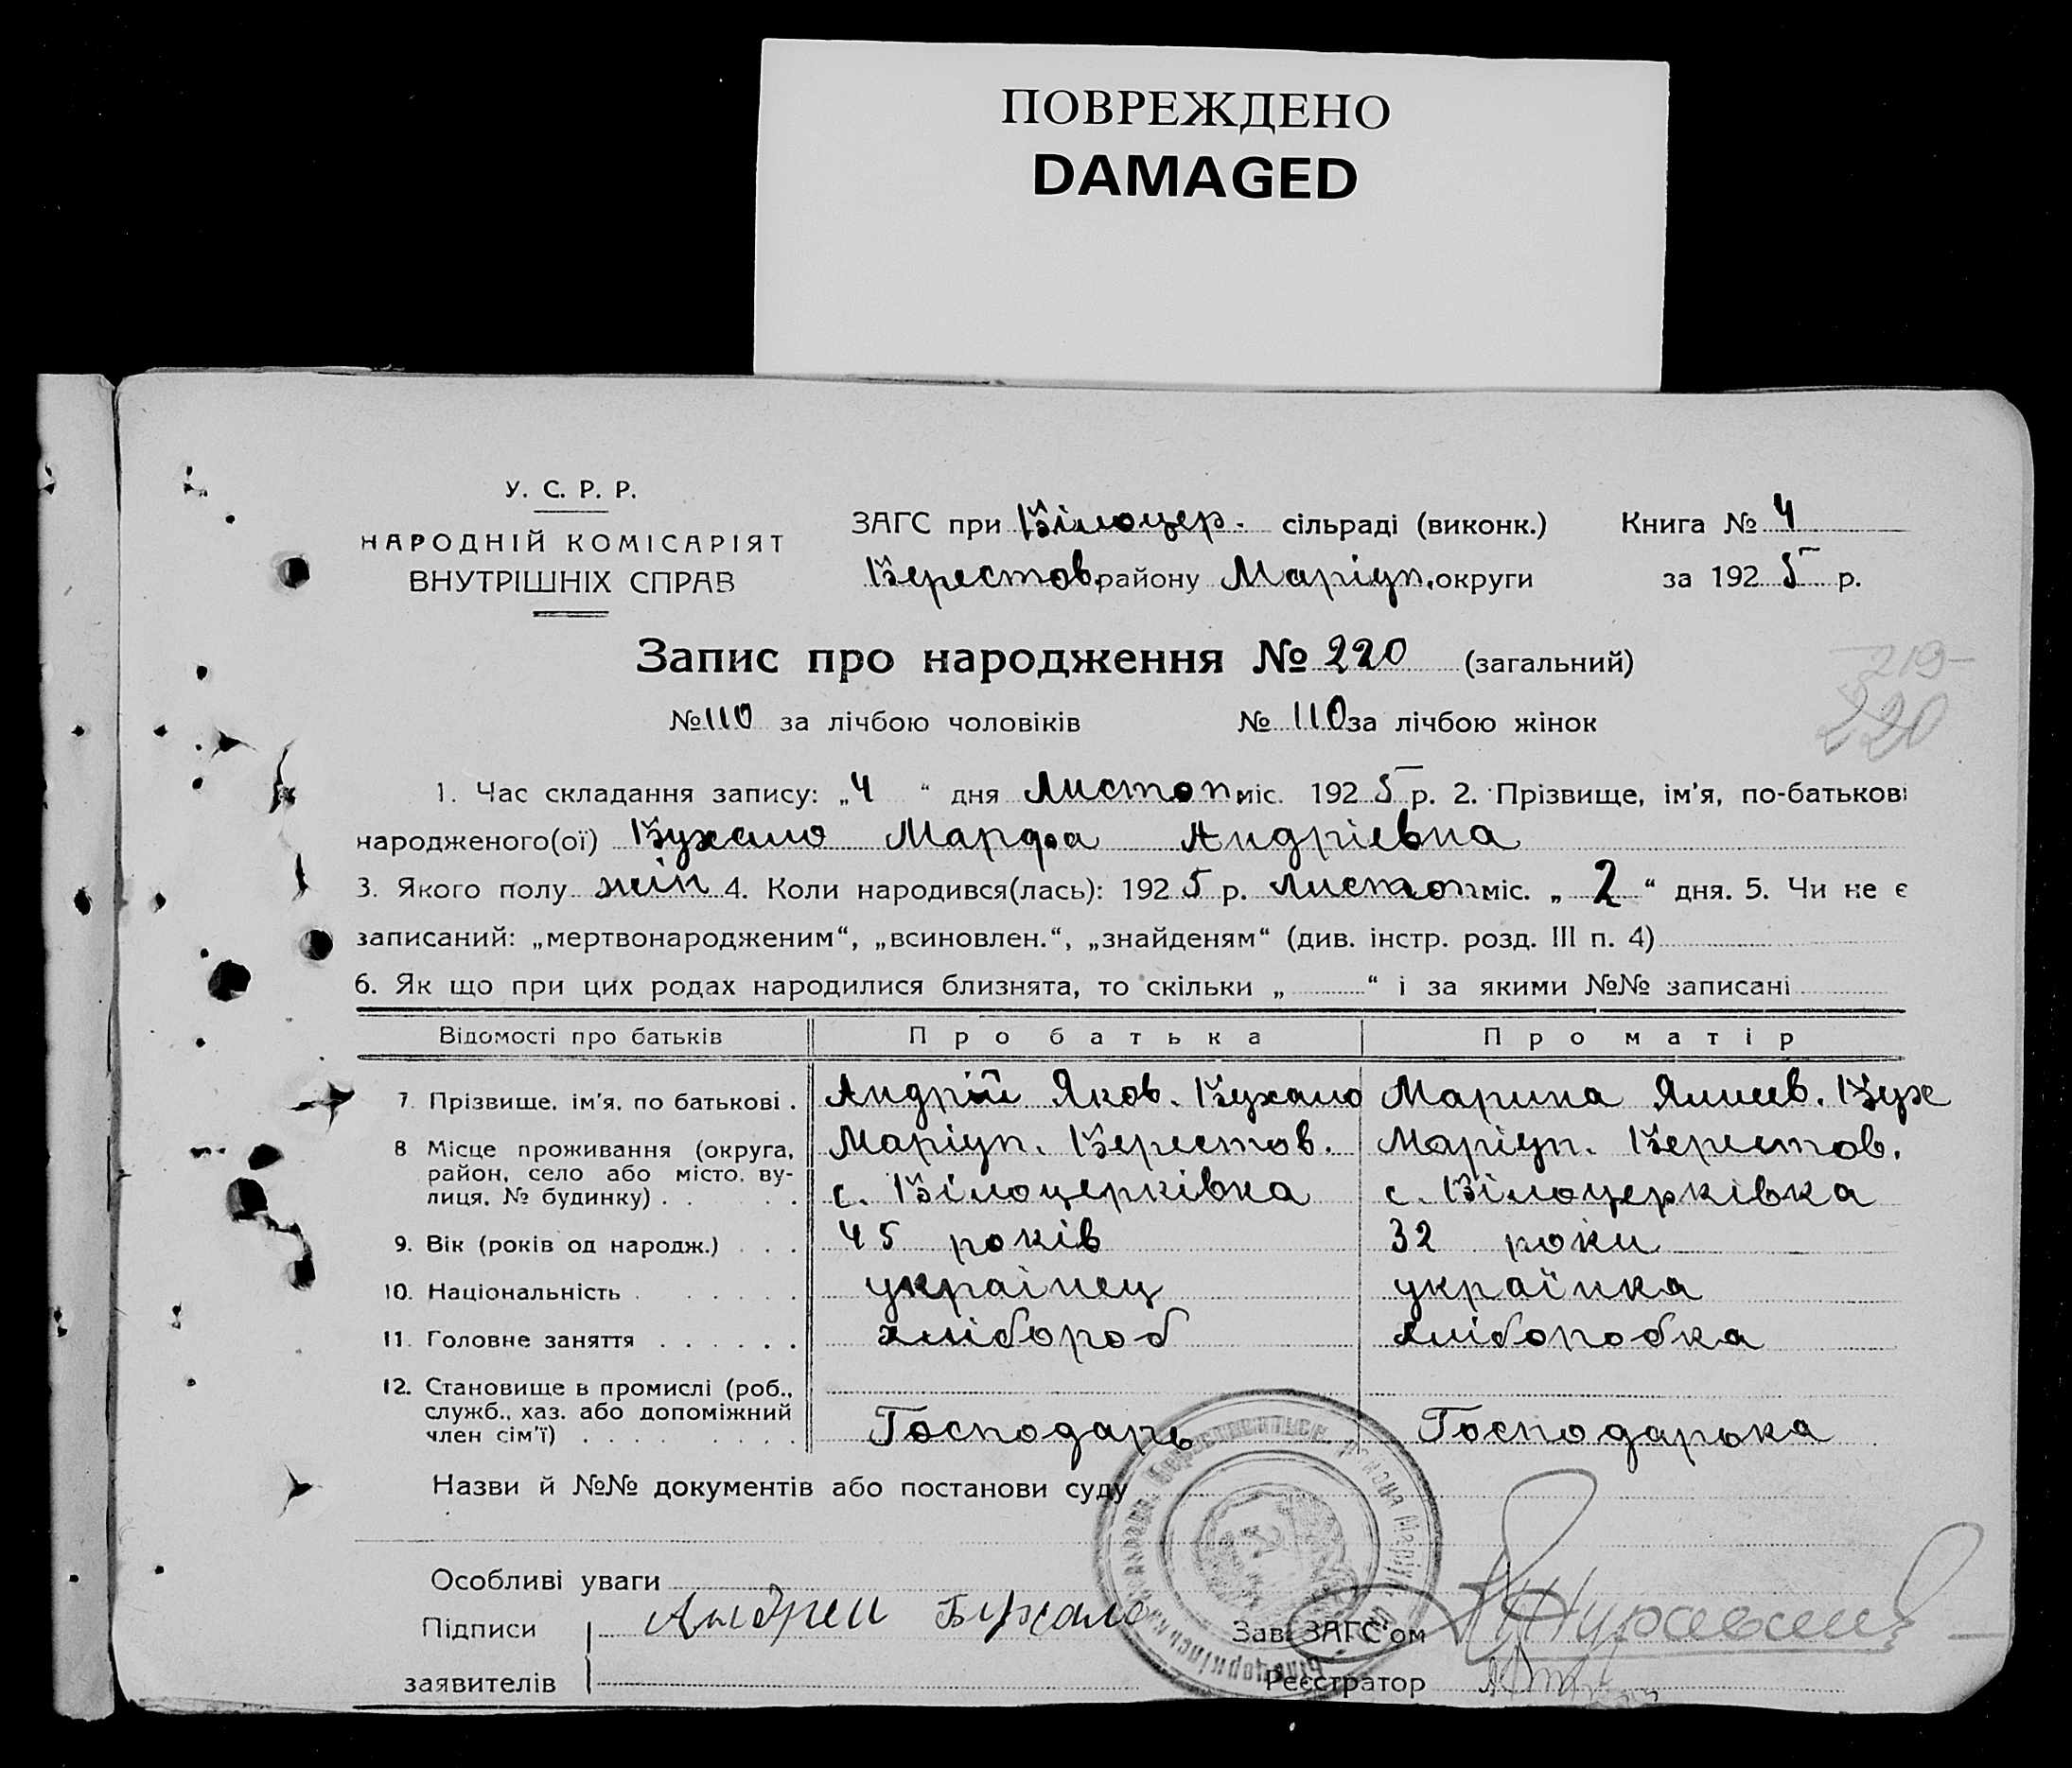 ПОВРЕЖДЕНО
DAMAGED
У. С. Р. Р.
НАРОДНІЙ КОМІСАРІЯТ
ВНУТРІШНІХ СПРАВ
ЗАГС при Білоцер. сільраді (виконк.) Книга № 4
Берестов. району Маріуп. округи за 1925 р.
Запис про народження № 220 (загальний)
219
220
№ 110 за лічбою чоловіків № 110 за лічбою жінок
1. Час складання запису: „4“ дня Листоп. міс. 1925 р. 2. Прізвище, ім'я, по-батькові
народженого(ої) Бухало Марфа Андріевна
3. Якого полу жін 4. Коли народився(лась): 1925 р. листоп міс. „2“ дня. 5. Чи не є
записаний: „мертвонародженим“, „всиновлен.“, „знайденям“ (див. інстр. розд. III п. 4)
6. Як що при цих родах народилися близнята, то скільки „ “ і за якими №№ записані
Відомості про батьків Про батька Про матір
7. Прізвище, ім'я, по батькові . Андрій Яков. Бухало Марина Бух
8 Місце проживання (округа, Маріуп. Берестов. Маріуп. Берестов.
район, село або місто, ву-
лиця, № будинку) . . . . с. Білоцерківка с. Білоцерківка
9. Вік (років од народж.) . . . 45 років 32 роки
10. Національність . . . . . . украінец українка
11. Головне заняття . . . . . . хлібороб хліборобка
12. Становище в промислі (роб.,
служб., хаз. або допоміжний
член сім'ї) . . . . . . . . . Господарь Господарька
Назви й №№ документів або постанови суду
Особливі уваги
Підписи Андреи Бухало Зав. ЗАГС'ом
заявителів Реєстратор